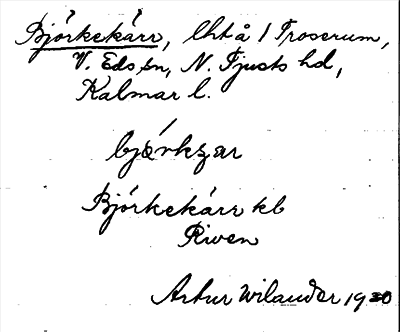 Björkekärr, lht å 1 Troserum,
V. Eds sn, N. Tjusts hd,
Kalmar l.
Björkekärr kl
Riven
Artur Wilander 1930